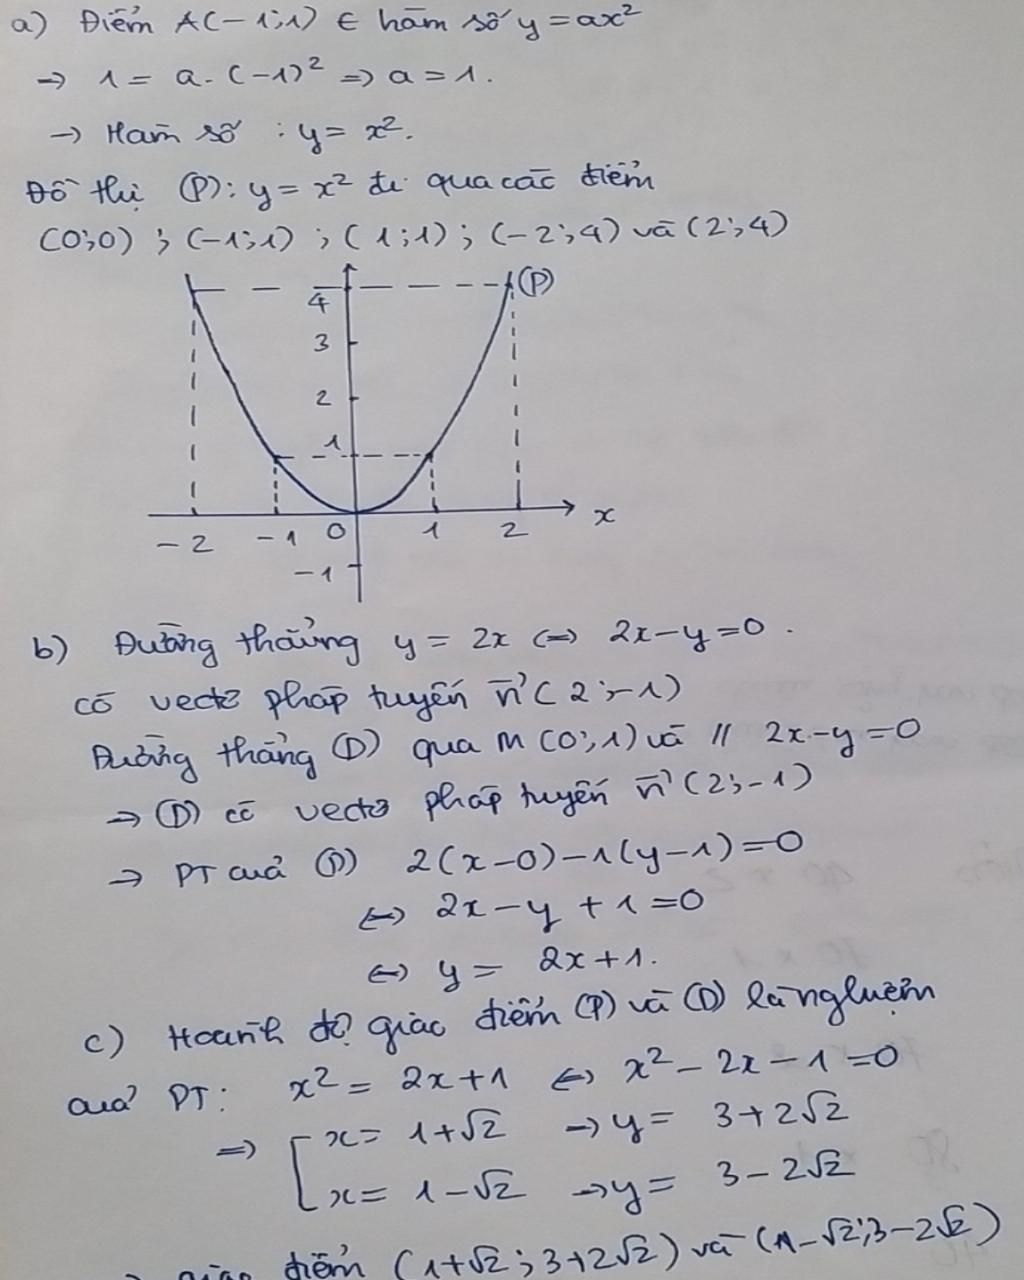 a) Điểm A(-1;1) ∈ hàm số y = ax²
→ 1 = a. (-1)² => a = 1.
→ Hàm số : y = x².
Đồ thị (P): y = x² đi qua các điểm
(0;0) ; (-1;1) ; (1;1) ; (-2;4) và (2;4)
(P)
4
3
2
1
-2 -1 0 1 2 x
-1
b) Đường thẳng y = 2x <=> 2x-y=0.
có vectơ pháp tuyến n→(2;-1)
Đường thẳng (D) qua M (0;1) và // 2x-y=0
=> (D) có vectơ pháp tuyến n→(2;-1)
→ PT của (D) 2(x-0)-1(y-1)=0
<=> 2x-y+1=0
<=> y = 2x+1.
c) Hoành độ giao điểm (P) và (D) là nghiệm
của PT: x² = 2x+1 <=> x²-2x-1=0
=> [ x = 1+√2 → y = 3+2√2
x = 1-√2 → y = 3-2√2
giao điểm (1+√2;3+2√2) và (1-√2;3-2√2)